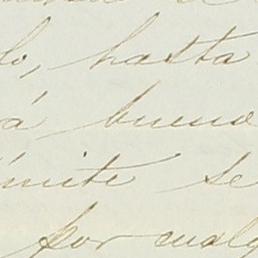 lo, hasta
á bueno
ímite se
por cualq